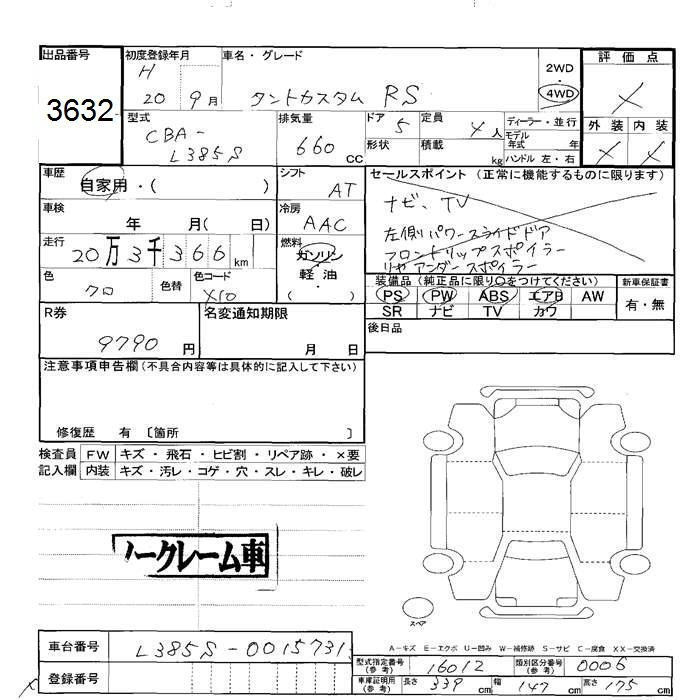 出品番号
3632
初度登録年月
H
20 9月
車名・グレード
タントカスタム RS
2WD
4WD
評価点
X
外装 内装
X X
型式
CBA-
L385S
排気量
660 cc
ドア 5
形状
定員 4人
積載 kg
ディーラー・並行
モデル年式 年
ハンドル 左・右
車歴
自家用・( )
シフト
AT
車検
年 月( 日)
冷房
AAC
走行
20万3千366km
燃料
ガソリン
軽油・
( )
色
クロ
色替
色コード
X10
セールスポイント (正常に機能するものに限ります)
ナビ、TV
左側パワースライドドア
フロントリップスポイラー
リヤアンダースポイラー
装備品(純正品に限り○をつけてください)
PS PW ABS エアB AW
SR ナビ TV カワ
新車保証書
有・無
後日品
R券
9790 円
名変通知期限
月 日
注意事項申告欄(不具合内容等は具体的に記入して下さい)
修復歴 有 〔箇所 〕
検査員 FW キズ・飛石・ヒビ割・リペア跡・×要
記入欄 内装 キズ・汚レ・コゲ・穴・スレ・キレ・破レ
ノークレーム車
スペア
A-キズ E-エクボ U-凹み W-補修跡 S-サビ C-腐食 XX-交換済
車台番号 L385S-0015731
登録番号
型式指定番号(参考) 16012 類別区分番号(参考) 0006
車庫証明用(参考) 長さ 339 cm 幅 147 cm 高さ 175 cm